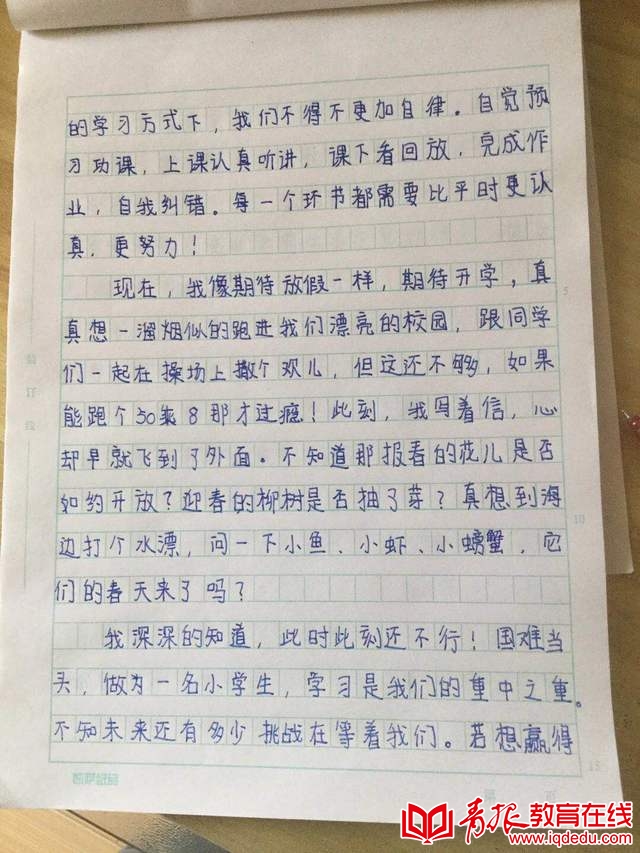 的学习方式下，我们不得不更加自律。自觉预
习功课，上课认真听讲，课下看回放，完成作
业，自我纠错。每一个环节都需要比平时更认
真，更努力！
现在，我像期待放假一样，期待开学，真
真想一溜烟似的跑进我们漂亮的校园，跟同学
们一起在操场上撒个欢儿，但这还不够，如果
能跑个50乘8那才过瘾！此刻，我写着信，心
却早就飞到了外面。不知道那报春的花儿是否
如约开放？迎春的柳树是否抽了芽？真想到海
边打个水漂，问一下小鱼、小虾、小螃蟹，它
们的春天来了吗？
我深深的知道，此时此刻还不行！国难当
头，做为一名小学生，学习是我们的重中之重。
不知未来还有多少挑战在等着我们。若想赢得
5
10
15
青报教育在线
www.iqdedu.com